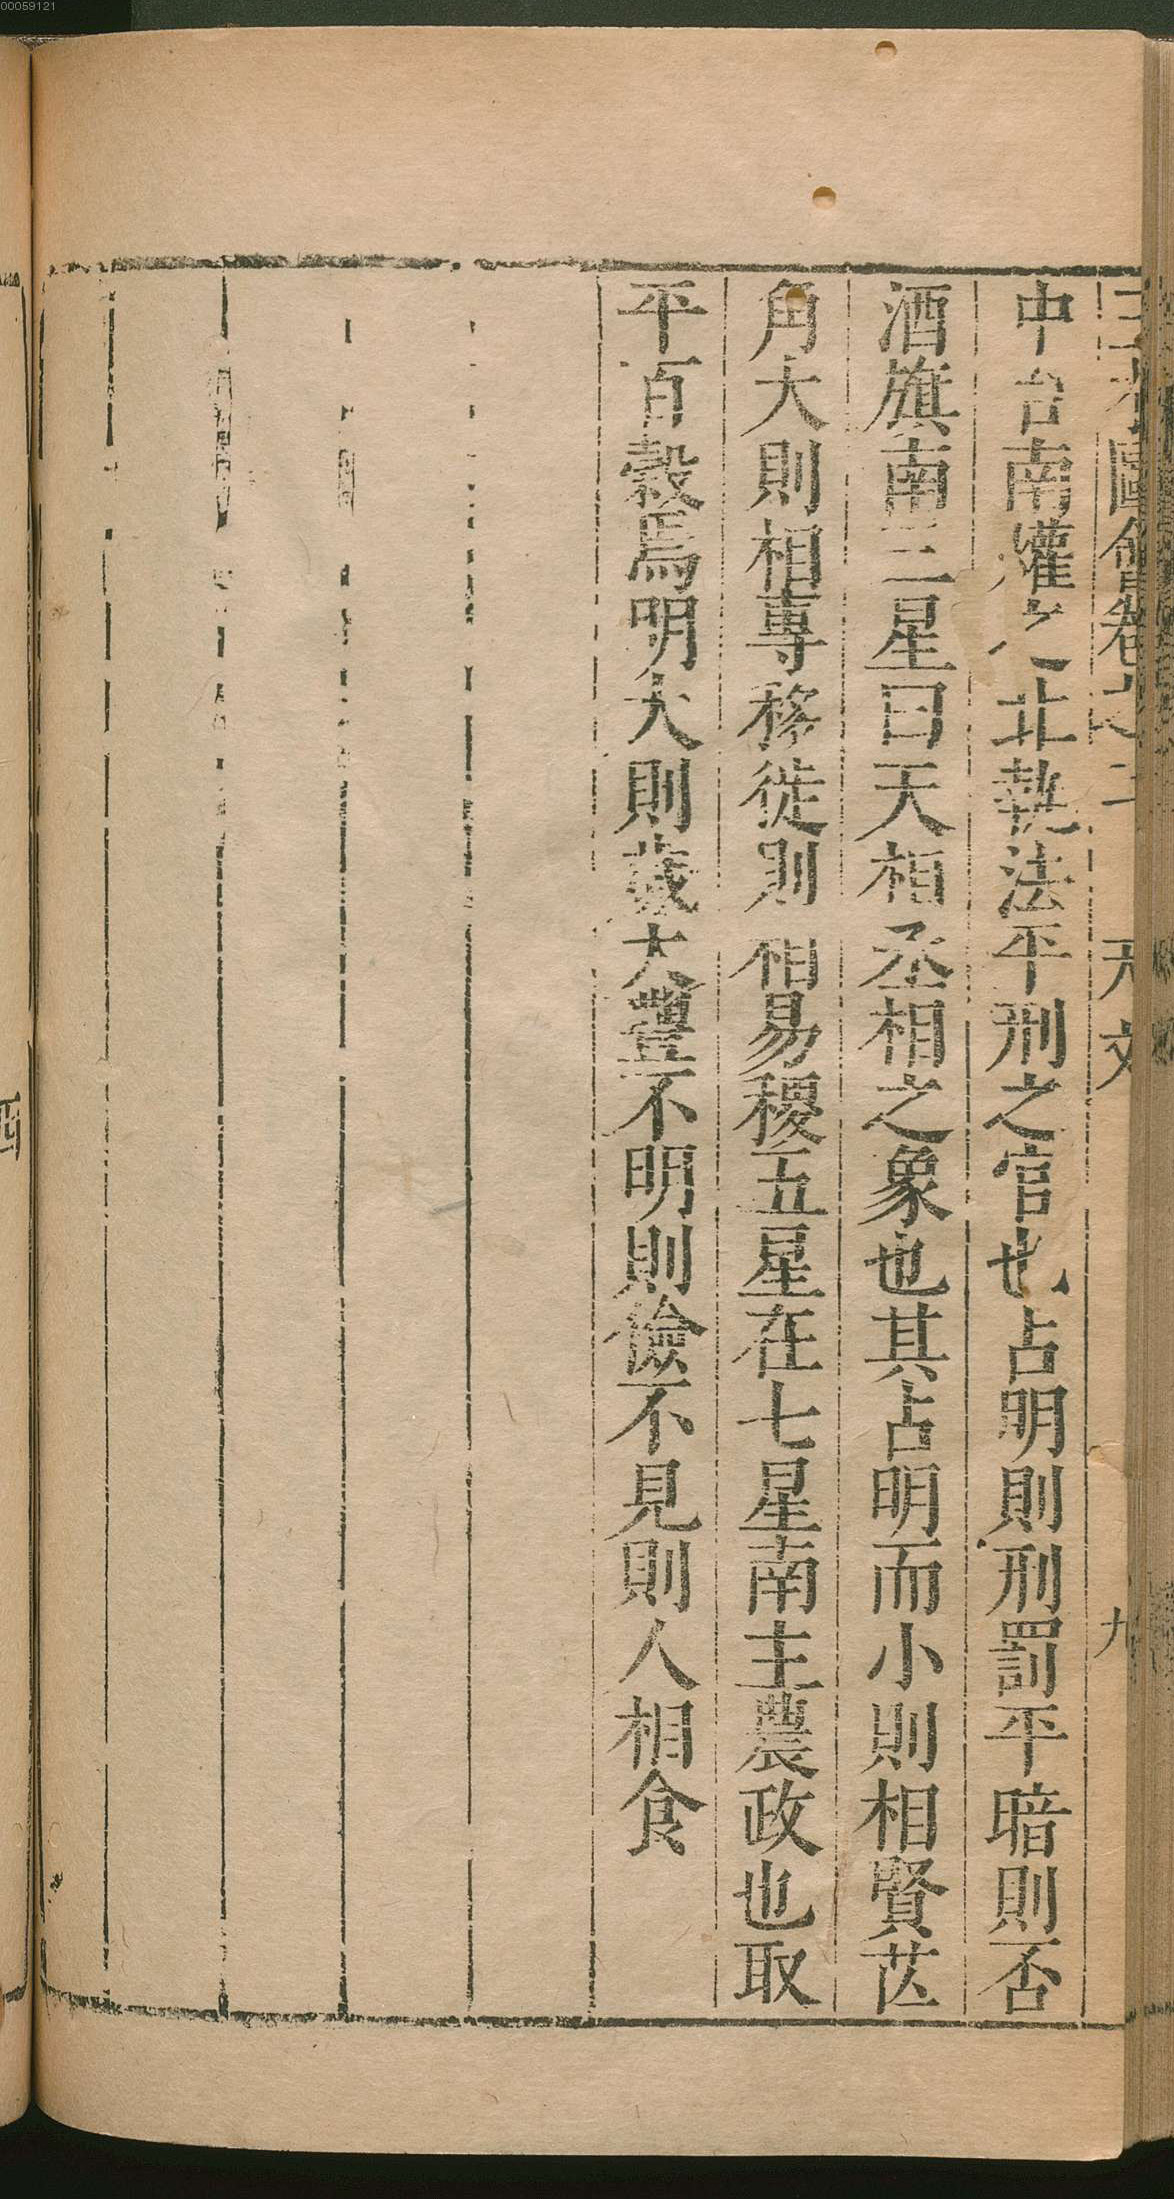 00059121
三才圖會卷之二 天文 九
中台南爟之北執法平刑之官也占明則刑罰平暗則否
酒旗南三星曰天相丞相之象也其占明而小則相賢芒
角大則相專移徙則相易稷五星在七星南主農政也取
平百穀焉明大則歲大豐不明則儉不見則人相食